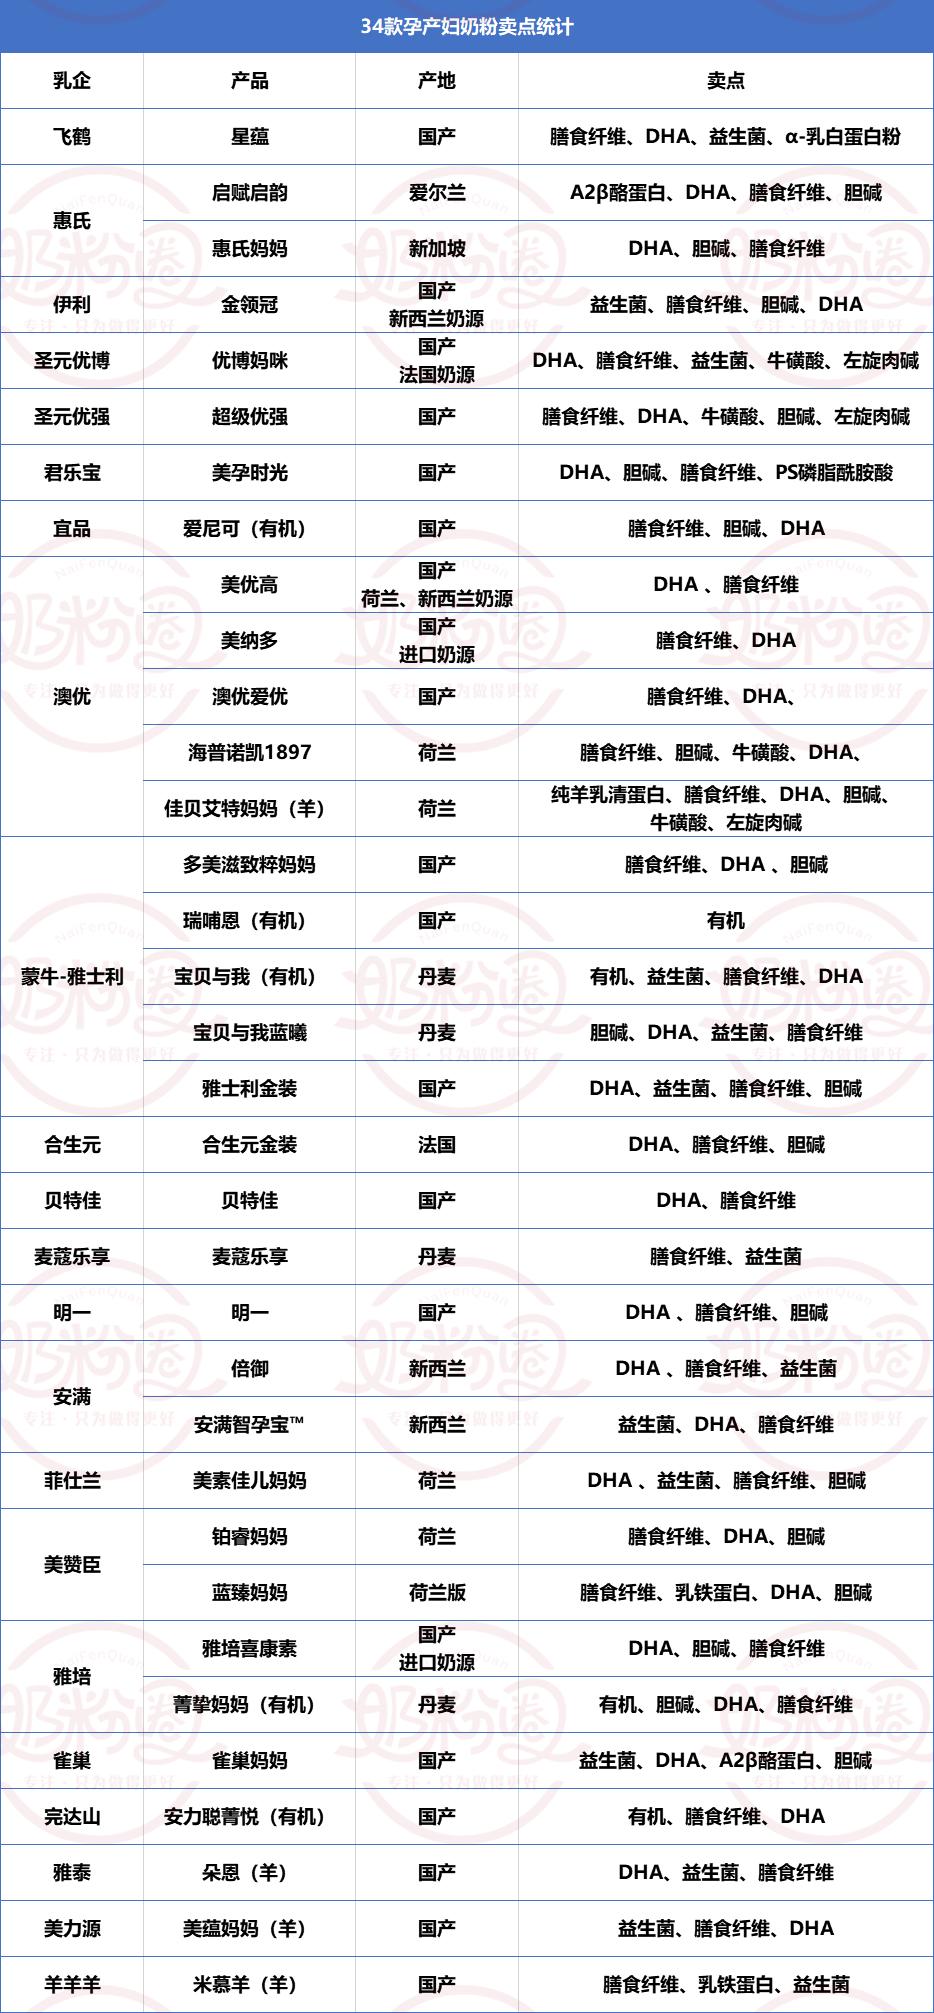 34款孕产妇奶粉卖点统计
乳企 产品 产地 卖点
飞鹤 星蕴 国产 膳食纤维、DHA、益生菌、α-乳白蛋白粉
惠氏 启赋启韵 爱尔兰 A2β酪蛋白、DHA、膳食纤维、胆碱
惠氏妈妈 新加坡 DHA、胆碱、膳食纤维
伊利 金领冠 国产 新西兰奶源 益生菌、膳食纤维、胆碱、DHA
圣元优博 优博妈咪 国产 法国奶源 DHA、膳食纤维、益生菌、牛磺酸、左旋肉碱
圣元优强 超级优强 国产 膳食纤维、DHA、牛磺酸、胆碱、左旋肉碱
君乐宝 美孕时光 国产 DHA、胆碱、膳食纤维、PS磷脂酰胺酸
宜品 爱尼可（有机） 国产 膳食纤维、胆碱、DHA
澳优 美优高 国产 荷兰、新西兰奶源 DHA 、膳食纤维
美纳多 国产 进口奶源 膳食纤维、DHA
澳优爱优 国产 膳食纤维、DHA、
海普诺凯1897 荷兰 膳食纤维、胆碱、牛磺酸、DHA、
佳贝艾特妈妈（羊） 荷兰 纯羊乳清蛋白、膳食纤维、DHA、胆碱、
牛磺酸、左旋肉碱
蒙牛-雅士利 多美滋致粹妈妈 国产 膳食纤维、DHA 、胆碱
瑞哺恩（有机） 国产 有机
宝贝与我（有机） 丹麦 有机、益生菌、膳食纤维、DHA
宝贝与我蓝曦 丹麦 胆碱、DHA、益生菌、膳食纤维
雅士利金装 国产 DHA、益生菌、膳食纤维、胆碱
合生元 合生元金装 法国 DHA、膳食纤维、胆碱
贝特佳 贝特佳 国产 DHA、膳食纤维
麦蔻乐享 麦蔻乐享 丹麦 膳食纤维、益生菌
明一 明一 国产 DHA 、膳食纤维、胆碱
安满 倍御 新西兰 DHA 、膳食纤维、益生菌
安满智孕宝™ 新西兰 益生菌、DHA、膳食纤维
菲仕兰 美素佳儿妈妈 荷兰 DHA 、益生菌、膳食纤维、胆碱
美赞臣 铂睿妈妈 荷兰 膳食纤维、DHA、胆碱
蓝臻妈妈 荷兰版 膳食纤维、乳铁蛋白、DHA、胆碱
雅培 雅培喜康素 国产 进口奶源 DHA、胆碱、膳食纤维
菁挚妈妈（有机） 丹麦 有机、胆碱、DHA、膳食纤维
雀巢 雀巢妈妈 国产 益生菌、DHA、A2β酪蛋白、胆碱
完达山 安力聪菁悦（有机） 国产 有机、膳食纤维、DHA
雅泰 朵恩（羊） 国产 DHA、益生菌、膳食纤维
美力源 美蕴妈妈（羊） 国产 益生菌、膳食纤维、DHA
羊羊羊 米慕羊（羊） 国产 膳食纤维、乳铁蛋白、益生菌
NaiFenQuan
奶粉圈
专注·只为做得更好